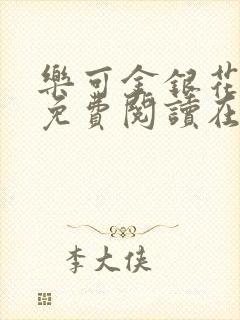 樂可金銀花
免費閱讀在
李大俠